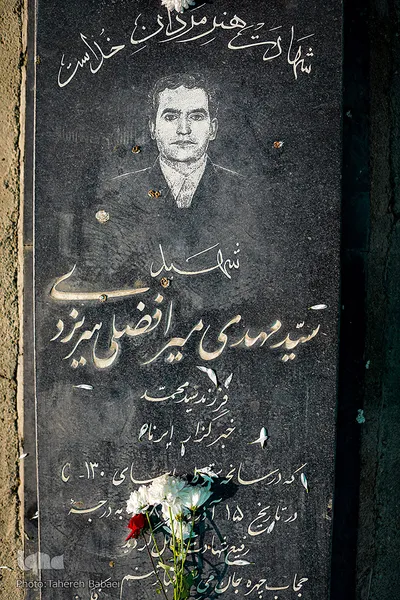 شهادت هنر مردان خداست
شهید
سید مهدی میرافضلی هیریزدی
فرزند سید محمد
خبرگزار ایرنا
که در سانحه هواپیمای ۱۳۰-C
در تاریخ ۱۵ به درجه
رفیع شهادت
حجاب چهره جان
iqna
Photo: Tahereh Babaei